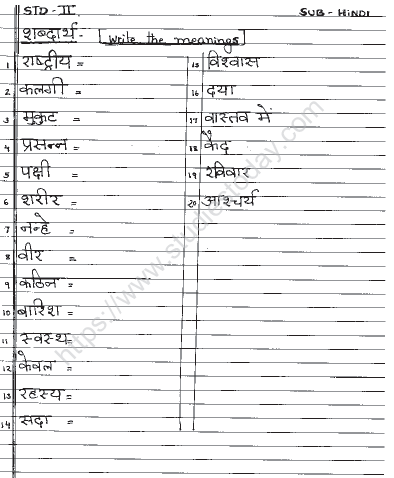 STD - II SUB - HINDI
शब्दार्थ - [Write the meanings]
1 राष्ट्रीय =
2 कलगी =
3 मुकुट =
4 प्रसन्न =
5 पक्षी =
6 शरीर =
7 नन्हे =
8 वीर =
9 कठिन =
10 बारिश =
11 स्वस्थ =
12 केवल =
13 रहस्य =
14 सदा =
15 विश्वास
16 दया
17 वास्तव में
18 कैद
19 रविवार
20 आश्चर्य
https://www.studiestoday.com